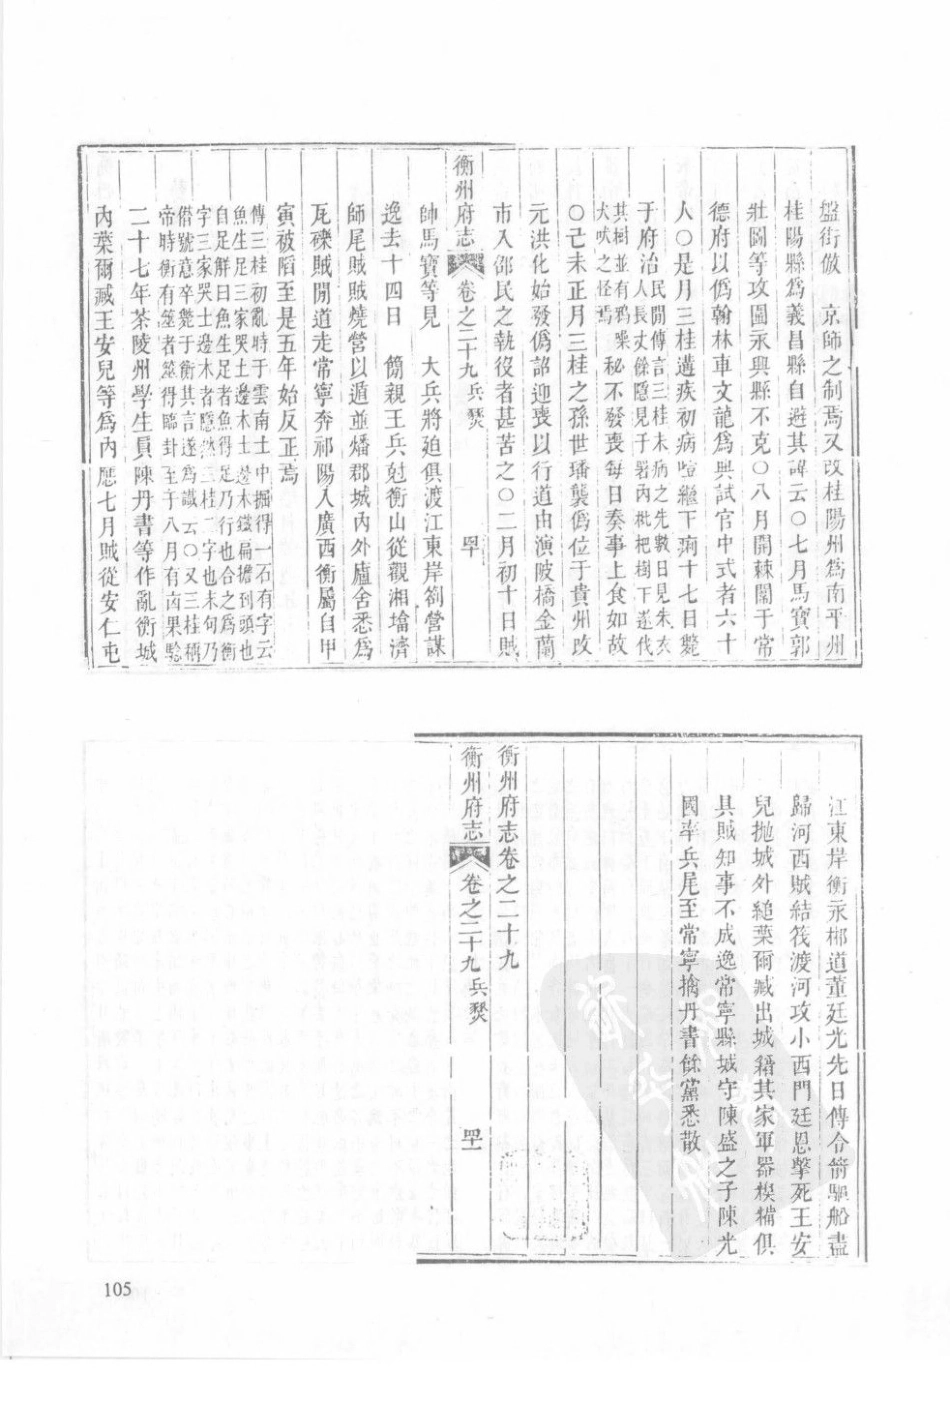 盤街倣　京師之制焉又改桂陽州爲南平州
桂陽縣爲義昌縣自避其諱云〇七月馬寶郭
壯圖等攻圍永興縣不克〇八月開棘闈于常
德府以僞翰林車文龍爲典試官中式者六十
人〇是月三桂遘疾初病噎繼下痢十七日斃
于府治民間傳言三桂未病之先數日見朱衣
人長丈餘隱見于署内枇杷樹下遂伐
其樹並有鴉噪
犬吠之怪焉
秘不發喪每日奏事上食如故
〇己未正月三桂之孫世璠襲僞位于貴州改
元洪化始發僞詔迎喪以行道由演陂橋金蘭
市入邵民之執役者甚苦之〇二月初十日賊
衡州府志　卷之二十九　兵燹　四十
帥馬寶等見　大兵將迫俱渡江東岸劄營謀
逸去十四日　簡親王兵尅衡山從觀湘墖濟
師尾賊賊燒營以遁並燔郡城内外廬舍悉爲
瓦礫賊間道走常寧奔祁陽入廣西衡屬自甲
寅被陷至是五年始反正焉
傳三桂初亂時于雲南土中掘得一石有字云
魚生足三家哭土邊木土邊木鐵扁擔到頭也
自足解曰魚生足者魚得足乃行也合之爲衡
字三家哭土邊木者隱然三桂二字也末句乃
僣號意卒斃于衡其言遂爲讖云〇又三桂稱
帝時衡有筮者筮得臨卦至于八月有凶果騐
二十七年茶陵州學生員陳丹書等作亂衡城
内葉爾臧王安兒等爲内應七月賊從安仁屯
江東岸衡永郴道董廷光先日傳令箭驅船盡
歸河西賊結筏渡河攻小西門廷恩擊死王安
兒拋城外縋葉爾臧出城籍其家軍器糗糒俱
具賊知事不成逸常寧縣城守陳盛之子陳光
國率兵尾至常寧擒丹書餘黨悉散
衡州府志卷之二十九
衡州府志　卷之二十九　兵燹　四十一
105